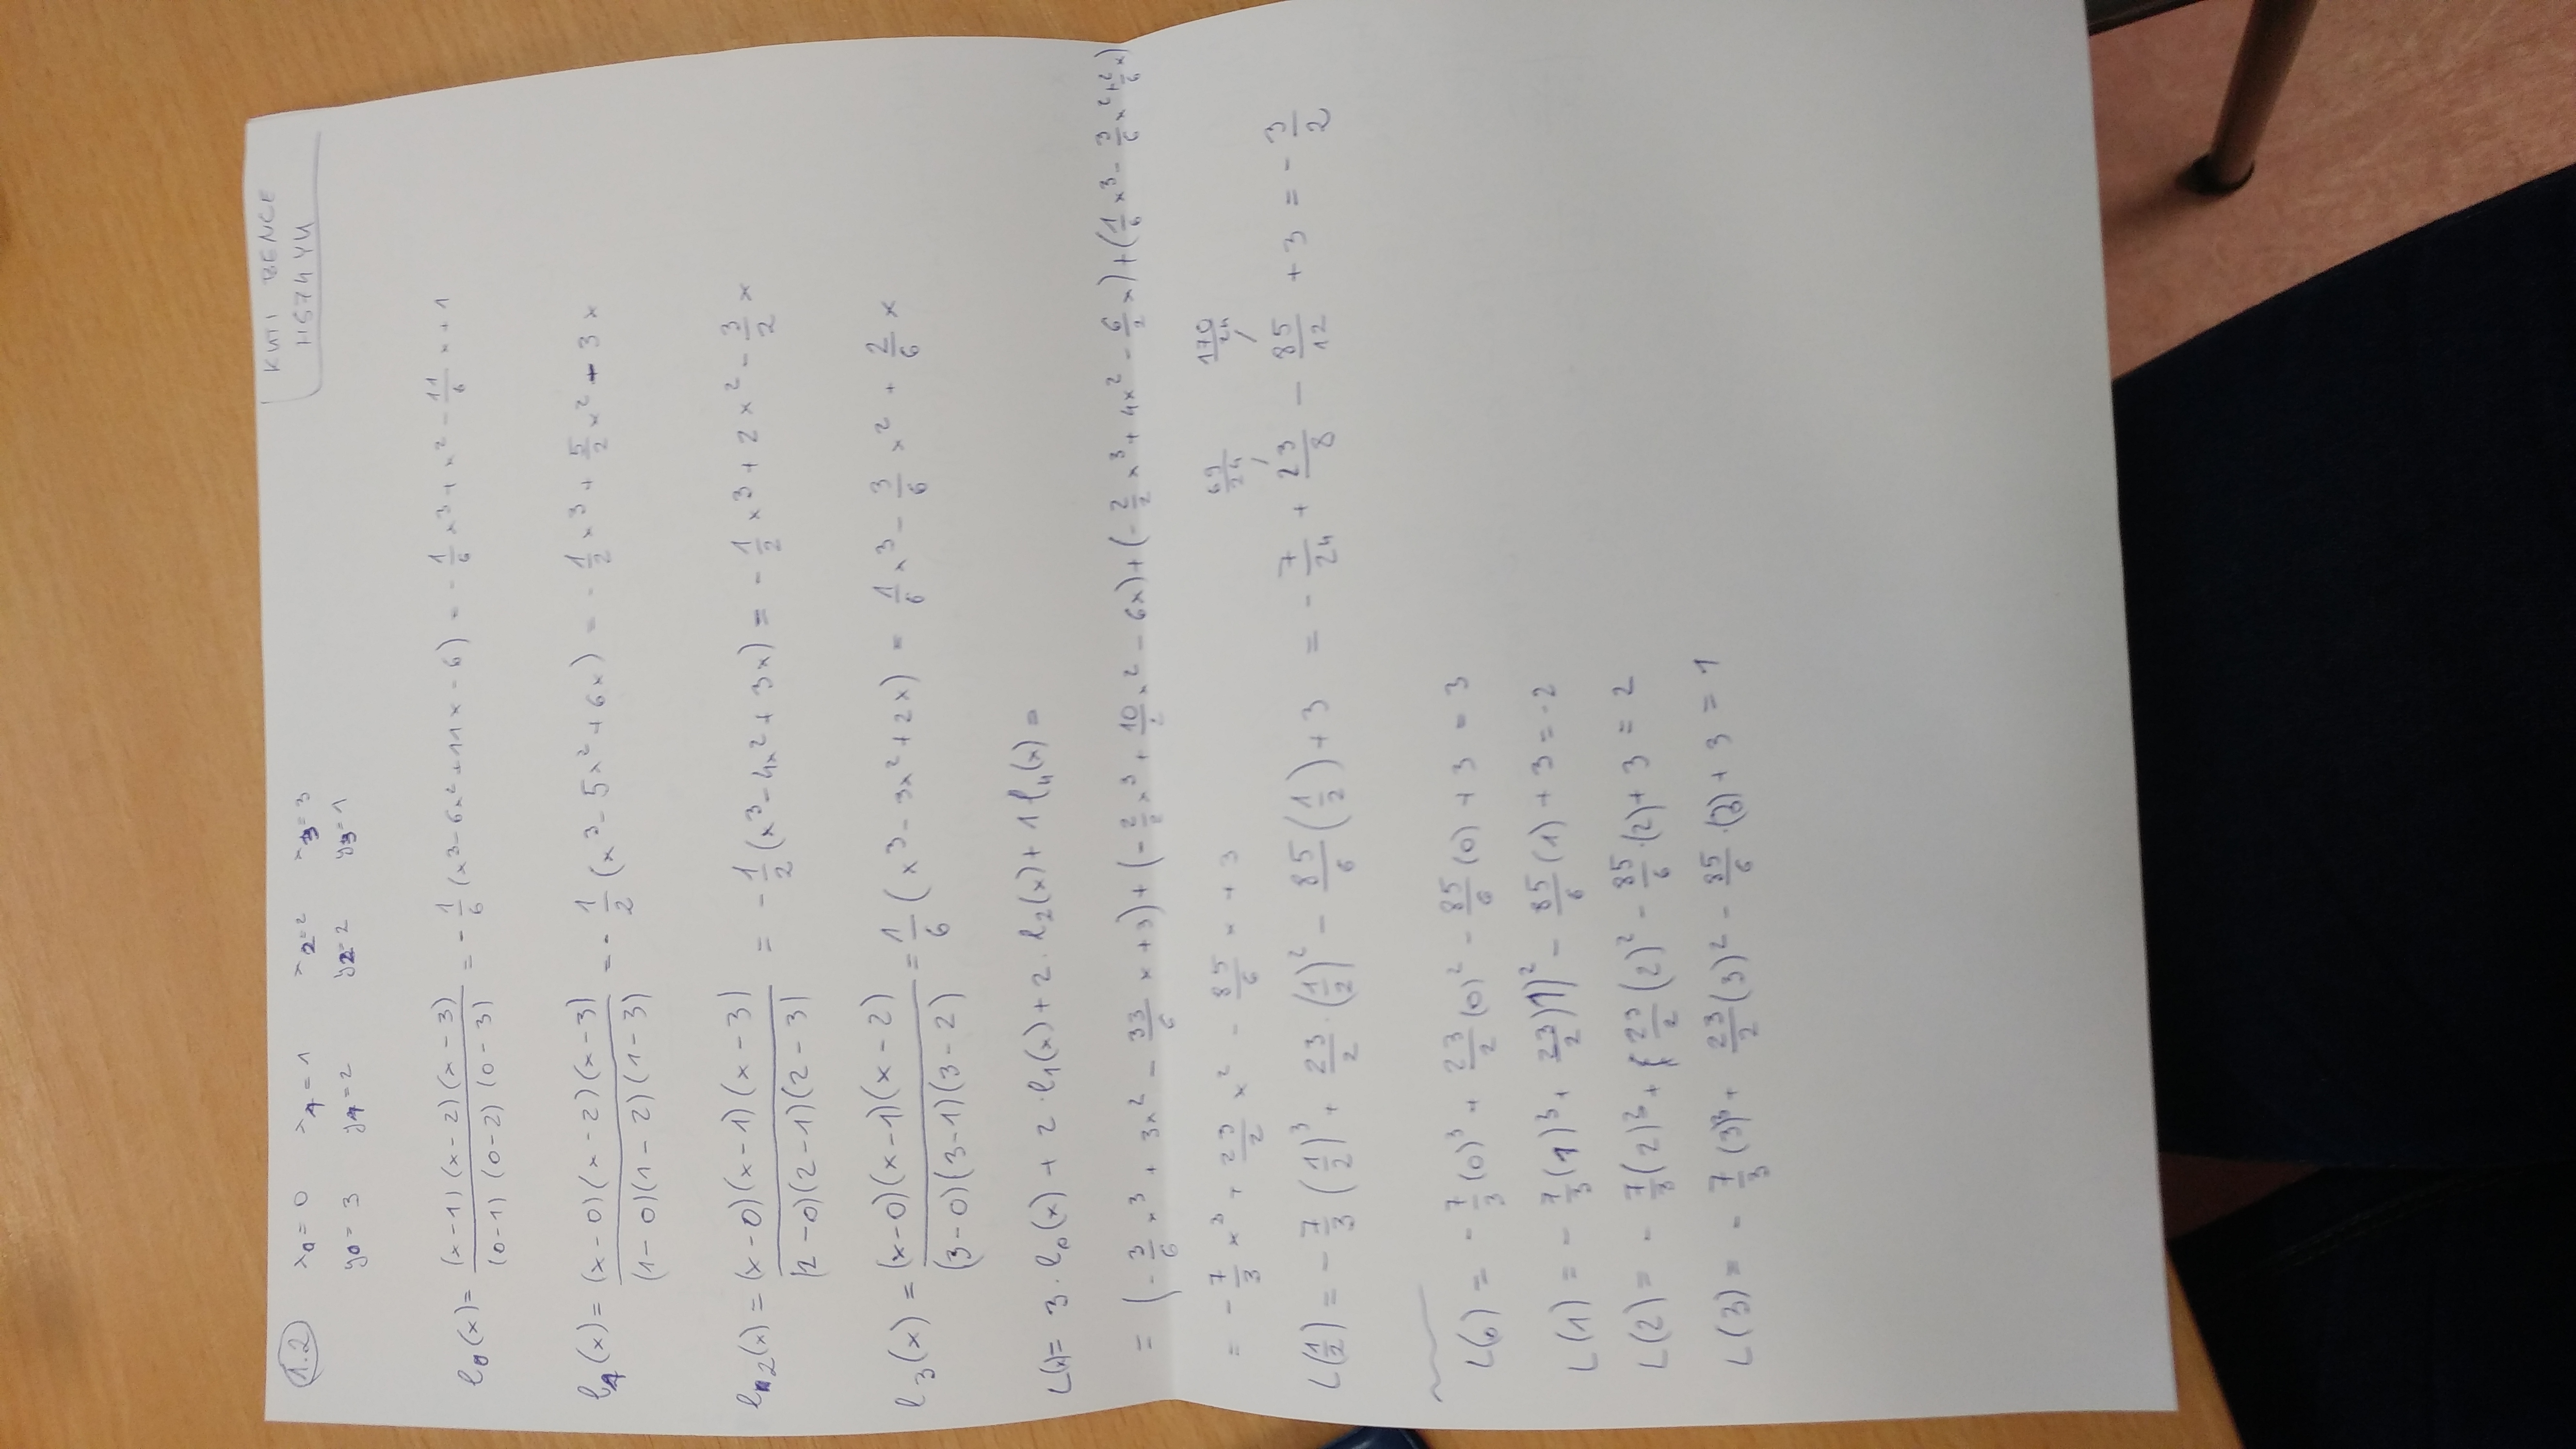 1.2 x₀ = 0 x₁ = 1 x₂ = 2 x₃ = 3
KUTI BENCE
y₀ = 3 y₁ = 2 y₂ = 2 y₃ = 1
l₀(x) = (x-1)(x-2)(x-3) / (0-1)(0-2)(0-3) = -1/6 (x³-6x²+11x-6) = -1/6 x³ + x² - 11/6 x + 1
l₁(x) = (x-0)(x-2)(x-3) / (1-0)(1-2)(1-3) = -1/2 (x³-5x²+6x) = -1/2 x³ + 5/2 x² - 3x
l₂(x) = (x-0)(x-1)(x-3) / (2-0)(2-1)(2-3) = -1/2 (x³-4x²+3x) = -1/2 x³ + 2x² - 3/2 x
l₃(x) = (x-0)(x-1)(x-2) / (3-0)(3-1)(3-2) = 1/6 (x³-3x²+2x) = 1/6 x³ - 3/6 x² + 2/6 x
L(x) = 3·l₀(x) + 2·l₁(x) + 2·l₂(x) + 1 l₄(x) =
= (-3/6 x³ + 3x² - 33/6 x + 3) + (-2/2 x³ + 10/2 x² - 6x) + (-2/2 x³ + 4x² - 6/2 x) + (1/6 x³ - 3/6 x² + 2/6 x)
= -7/3 x³ + 23/2 x² - 85/6 x + 3
69/24 170/24
L(1/2) = -7/3 (1/2)³ + 23/2 · (1/2)² - 85/6 (1/2) + 3 = -7/24 + 23/8 - 85/12 + 3 = -3/2
L(0) = -7/3 (0)³ + 23/2 (0)² - 85/6 (0) + 3 = 3
L(1) = -7/3 (1)³ + 23/2 )1)² - 85/6 (1) + 3 = -2
L(2) = -7/3 (2)³ + 23/2 (2)² - 85/6 ·(2) + 3 = 2
L(3) = -7/3 (3)³ + 23/2 (3)² - 85/6 ·(3) + 3 = 1